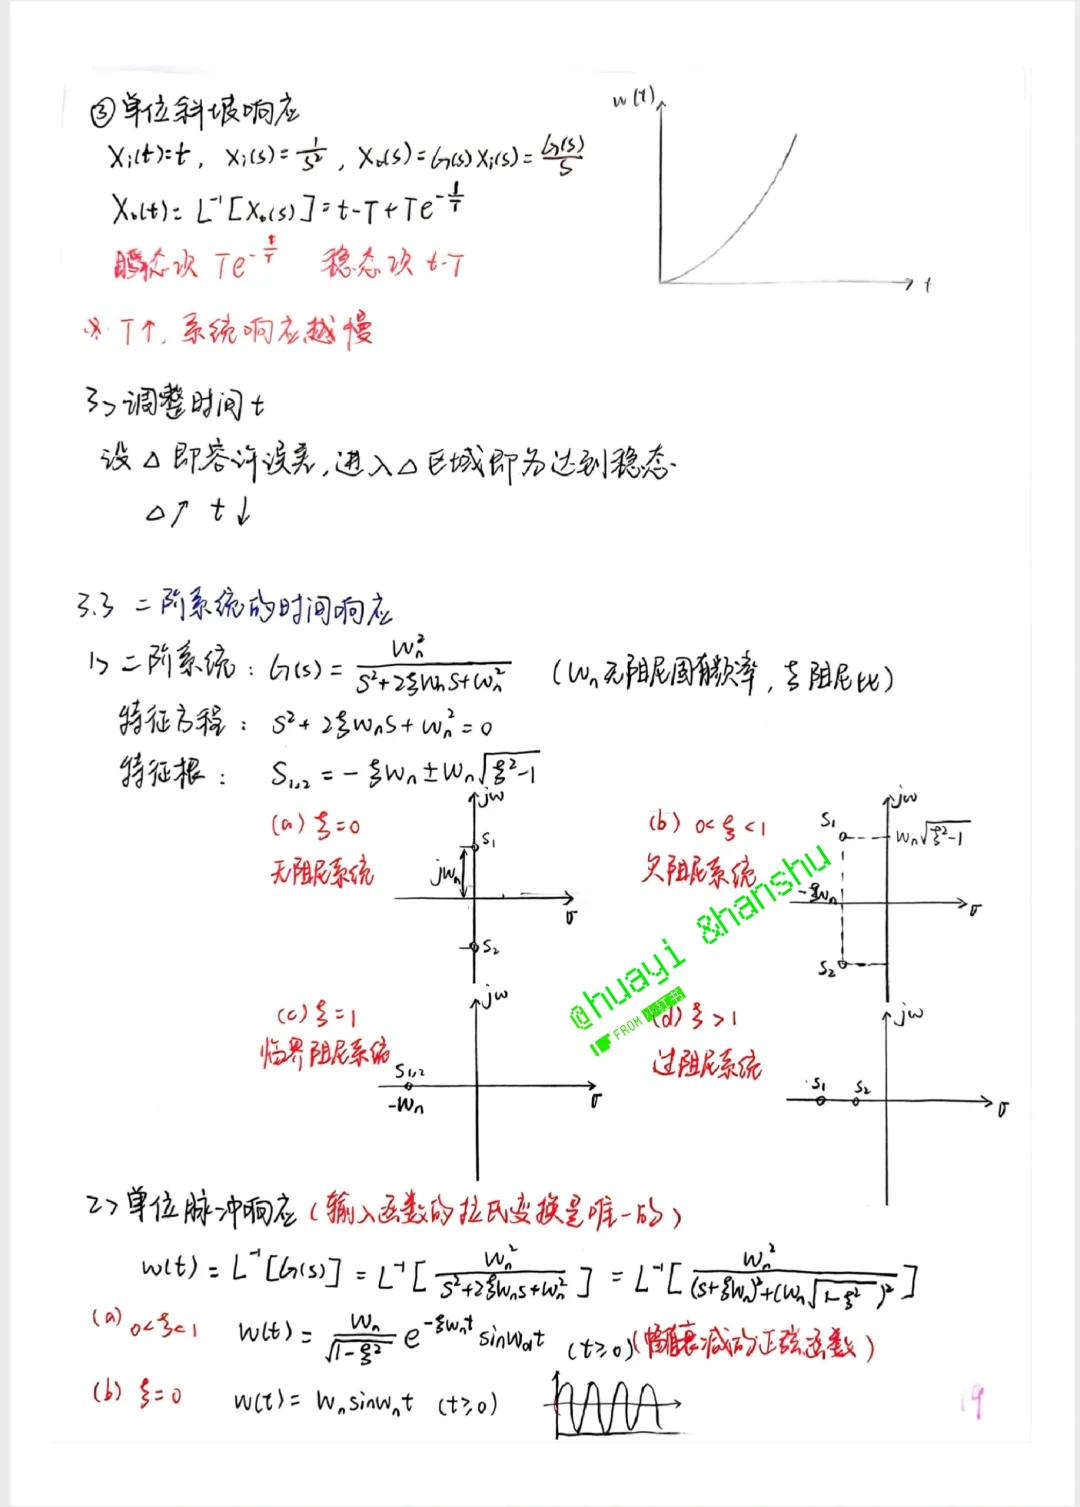 ③单位斜坡响应
Xi(t)=t, Xi(s)=1/S², Xo(s)=G(s)Xi(s)=G(s)/S
Xo(t)=L⁻¹[Xo(s)]=t-T+Te^(-t/T)
瞬态项 Te^(-t/T) 稳态项 t-T
※ T↑, 系统响应越慢
w(t)
t
3>调整时间t
设△即容许误差,进入△区域即为达到稳态.
△↗ t↓
3.3 二阶系统的时间响应
1>二阶系统: G(s)=Wn²/(S²+2ξWnS+Wn²) (Wn无阻尼固有频率, ξ阻尼比)
特征方程: S²+2ξWnS+Wn²=0
特征根: S1,2=-ξWn±Wn√(ξ²-1)
(a) ξ=0
无阻尼系统
jw
S1
jWn
σ
S2
(b) 0<ξ<1
欠阻尼系统
jw
S1
Wn√(ξ²-1)
-ξWn
σ
S2
@huayi &hanshu
FROM
(c) ξ=1
临界阻尼系统
jw
S1,2
-Wn
σ
(d) ξ>1
过阻尼系统
jw
S1 S2
σ
2>单位脉冲响应(输入函数的拉氏变换是唯一的)
w(t)=L⁻¹[G(s)]=L⁻¹[Wn²/(S²+2ξWnS+Wn²)]=L⁻¹[Wn²/((S+ξWn)²+(Wn√(1-ξ²))²)]
(a) 0<ξ<1 w(t)=Wn/√(1-ξ²) e^(-ξWnt) sinWdt (t≥0)(幅值衰减的正弦函数)
(b) ξ=0 w(t)=WnsinWnt (t≥0)
19